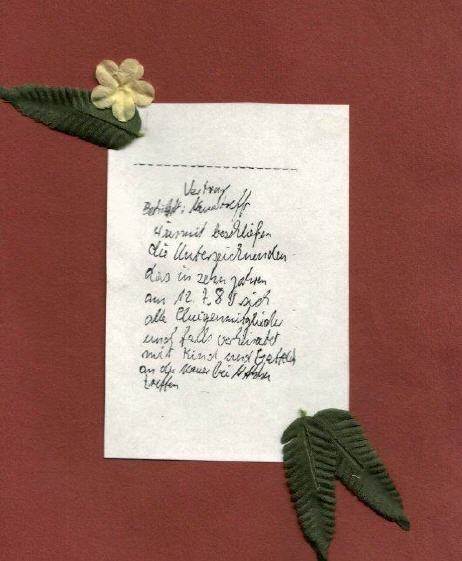 Vertrag
Betrifft:
Hiermit beschließen
die Unterzeichnenden
das in zehn Jahren
am 12.7.8 sich
alle Cliquenmitglieder
und falls verheiratet
mit Kind und
an der Mauer bei
treffen